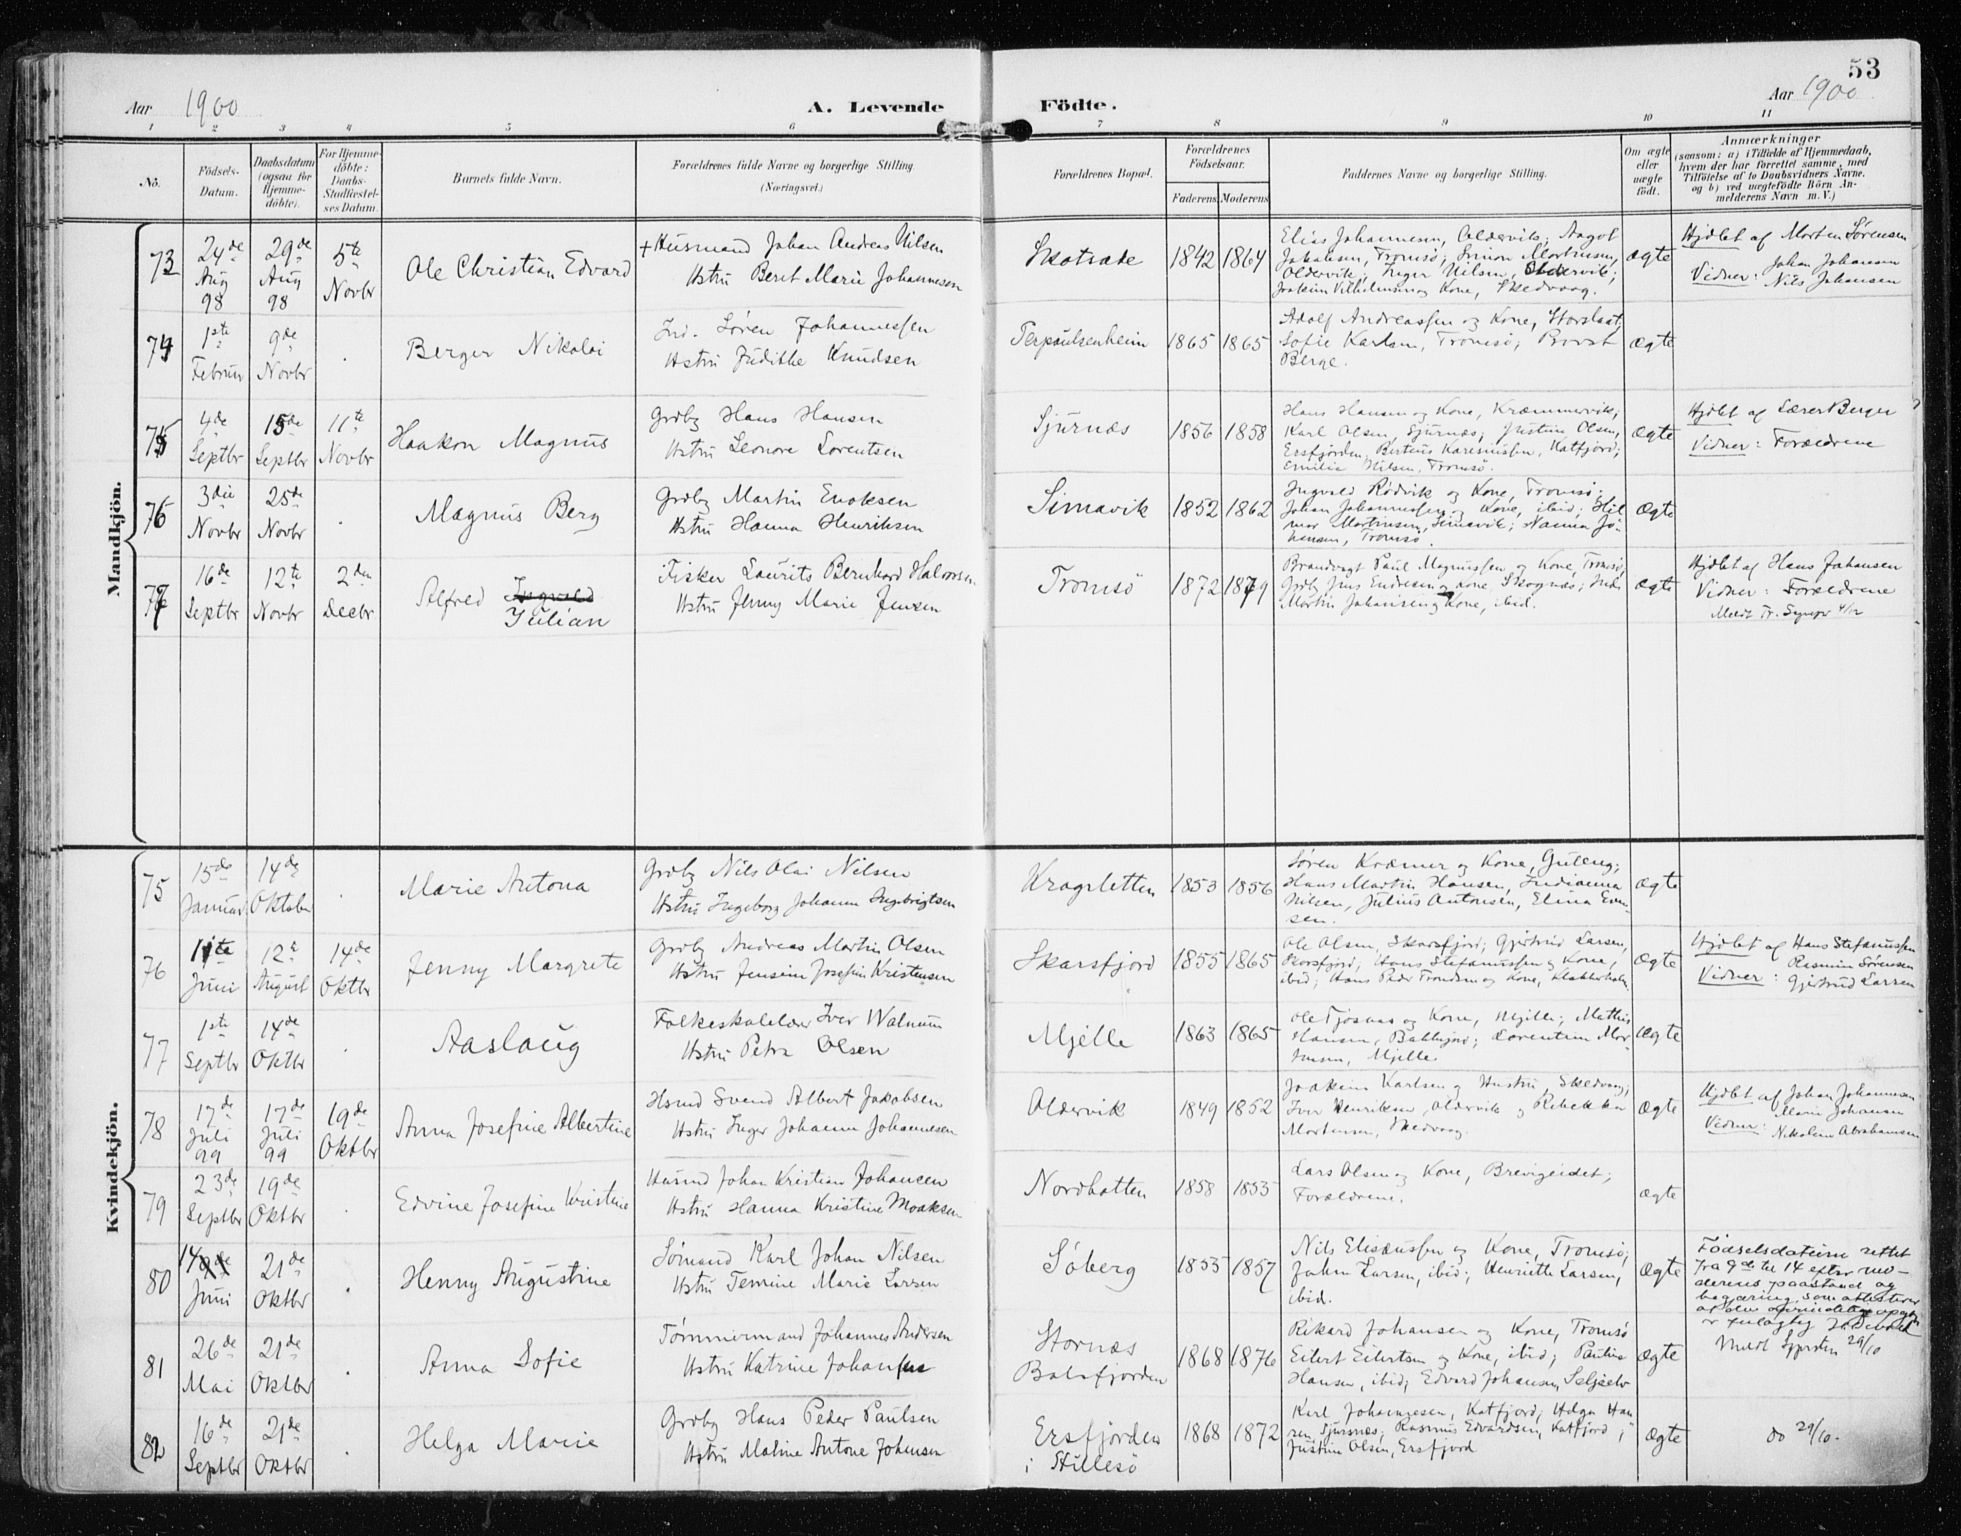 53
Aar 1900
A. Levende Födte.
Aar 1900
1 2 3 4 5 6 7 8 9 10 11
No.
Födsels-Datum.
Daabsdatum (ogsaa for Hjemme-döbte).
For Hjemme-döbte: Daabs-Stadfæstel-ses Datum.
Barnets fulde Navn.
Forældrenes fulde Navne og borgerlige Stilling.
(Næringsvei.)
Forældrenes Bopæl.
Forældrenes Födselsaar.
Faderens Moderens
Faddernes Navne og borgerlige Stilling.
Om ægte eller uægte födt.
Anmærkninger
(saasom: a) i Tilfælde af Hjemmedaab,
hvem der har forrettet samme, med
Tilföielse af to Daabsvidners Navne.
og b) ved uægtefödte Börn An-
melderens Navn m. V.)
Mandkjön.
73
24de Aug 98
29de Aug 98
5te Novbr
Ole Christian Edvard
+ Husmand Johan Andreas Nilsen
Hstru Berit Marie Johannesen
Skotsæde
1842 1864
Elias Johannesen, Oldervik; Aagot
Jakobsen, Tromsö; Simon Mortensen,
Oldervik; Inger Nilsen, Oldervik;
Joakim Vilhelmsen og Kone, Skedvaag.
ægte
Hjdbt af Morten Sørensen
Vidner: Johan Johansen
Nils Johansen
74
1ste Februar
9de Novbr
Berger Nikolai
Ind. Søren Johannessen
Hstru Judithe Knudsen
Terpaulsenheim
1865 1865
Adolf Andreassen og Kone, Storslet,
Sofie Karlsen, Tromsö;
Berge.
ægte
75
4de Septbr
15de Septbr
11te Novbr
Haakon Magnus
Grdby Hans Hansen
Hstru Leonore Lorentsen
Sjurnæs
1856 1858
Hans Hansen og Kone, Kræmmervik;
Karl Olsen, Sjurnæs; Justine Olsen,
Ersfjorden, Berteus Kariniussen, Katfjord;
Emilie Nilsen, Tromsö.
ægte
Hjdbt af Lærer Berger
Vidner: Forældrene
76
3die Novbr
25de Novbr
Magnus Berg
Grdby Martin Enoksen
Hstru Hanna Henriksen
Simavik
1852 1862
Ingvald Rödvik og Kone, Tromsö;
Johan Johannessen og Kone, ibid; Hil-
mar Mortensen, Simavik; Nanna Jo-
hansen, Tromsö.
ægte
77
16de Septbr
12te Novbr
2den Decbr
Alfred Ingvald
Julian
Fisker Laurits Bernhard Halvorsen
Hstru Jenny Marie Jensen
Tromsö
1872 1879
Brandvagt Paul Magnussen og Kone, Tromsö,
Grdby Jens Endresen og Kone Skognæs; Inds
Martin Johansen og Kone, ibid.
ægte
Hjdbt af Hans Johansen
Vidner: Forældrene
Meldt Tr. Sogepr 4/12
Kvindekjön.
75
15de Januar
14de Oktober
Marie Antona
Grdby Nils Olai Nilsen
Hstru Ingeborg Johanna Ingebrigtsen
Kragsletten
1853 1856
Søren Kræmer og Kone, Guleng;
Hans Martin Hansen, Indianna
Nilsen, Julius Antonsen, Elina Even-
sen.
ægte
76
11te Juni
12te August
14de Oktbr
Jenny Margrete
Grdby Andreas Martin Olsen
Hstru Jensine Josefine Kristensen
Skarsfjord
1855 1865
Ole Olsen, Skarsfjord; Gjertrud Larsen,
Skarsfjord; Hans Stefanussen og Kone,
ibid; Hans Peder Trondsen og Kone,
ægte
Hjdbt af Hans Stefanussen
Vidner: Rasmus Sørensen
Gjertrud Larsen
77
1ste Septbr
14de Oktbr
Aaslaug
Folkeskolelærer Iver Walnum
Hstru Petra Olsen
Mjelle
1863 1865
Ole Tjosaas og Kone, Mjelle; Mathis
Hansen, Bakkejord; Lorentine Mor-
tensen, Mjelle.
ægte
78
17de Juli 99
17de Juli 99
19de Oktbr
Anna Josefine Albertine
Hsmd Svend Albert Jakobsen
Hstru Inger Johanna Johannesen
Oldervik
1849 1852
Joakim Karlsen og Hustru, Skedvaag;
Iver Henriksen, Oldervik og Rebekka
Mortensen, Skedvaag.
ægte
Hjdbt af Johan Johannesen
Vidner: Marie Johansen
Nikoline Abrahamsen
79
23de Septbr
19de Oktbr
Edvine Josefine Kristine
Husmd Johan Kristian Johansen
Hstru Hanna Kristine Moaksen
Nordbotten
1858 1855
Lars Olsen og Kone, Breivigeidet;
Forældrene.
ægte
80
14 9de Juni
21de Oktbr
Henny Augustine
Sømand Karl Johan Nilsen
Hstru Temine Marie Larsen
Søberg
1855 1857
Nils Elisæussen og Kone, Tromsö;
Johan Larsen, ibid; Henriette Larsen,
ibid.
ægte
Födselsdatum rettet
fra 9de til 14 efter mo-
derens paastand og
begjæring, som attesterer
at den oprindelige opgave
er feilagtig
81
26de Mai
21de Oktbr
Anna Sofie
Tømmermand Johannes Andersen
Hstru Katrine Johansen
Stornæs
Balsfjorden
1868 1876
Rikard Johansen og Kone, Tromsö
Eilert Eilertsen og Kone, ibid; Pauline
Hansen, ibid; Edvard Johansen, Seljeelv
ægte
Meldt Sgprsten 29/10
82
16de Septbr
21de Oktbr
Helga Marie
Grdby Hans Peder Paulsen
Hstru Maline Antone Johansen
Ersfjorden
i Stillesö
1868 1872
Karl Johannesen, Katfjord; Helga Han-
sen, Sjursnæs; Rasmus Edvardsen, Katfjord;
Justine Olsen, Ersfjord
ægte
do 29/10.